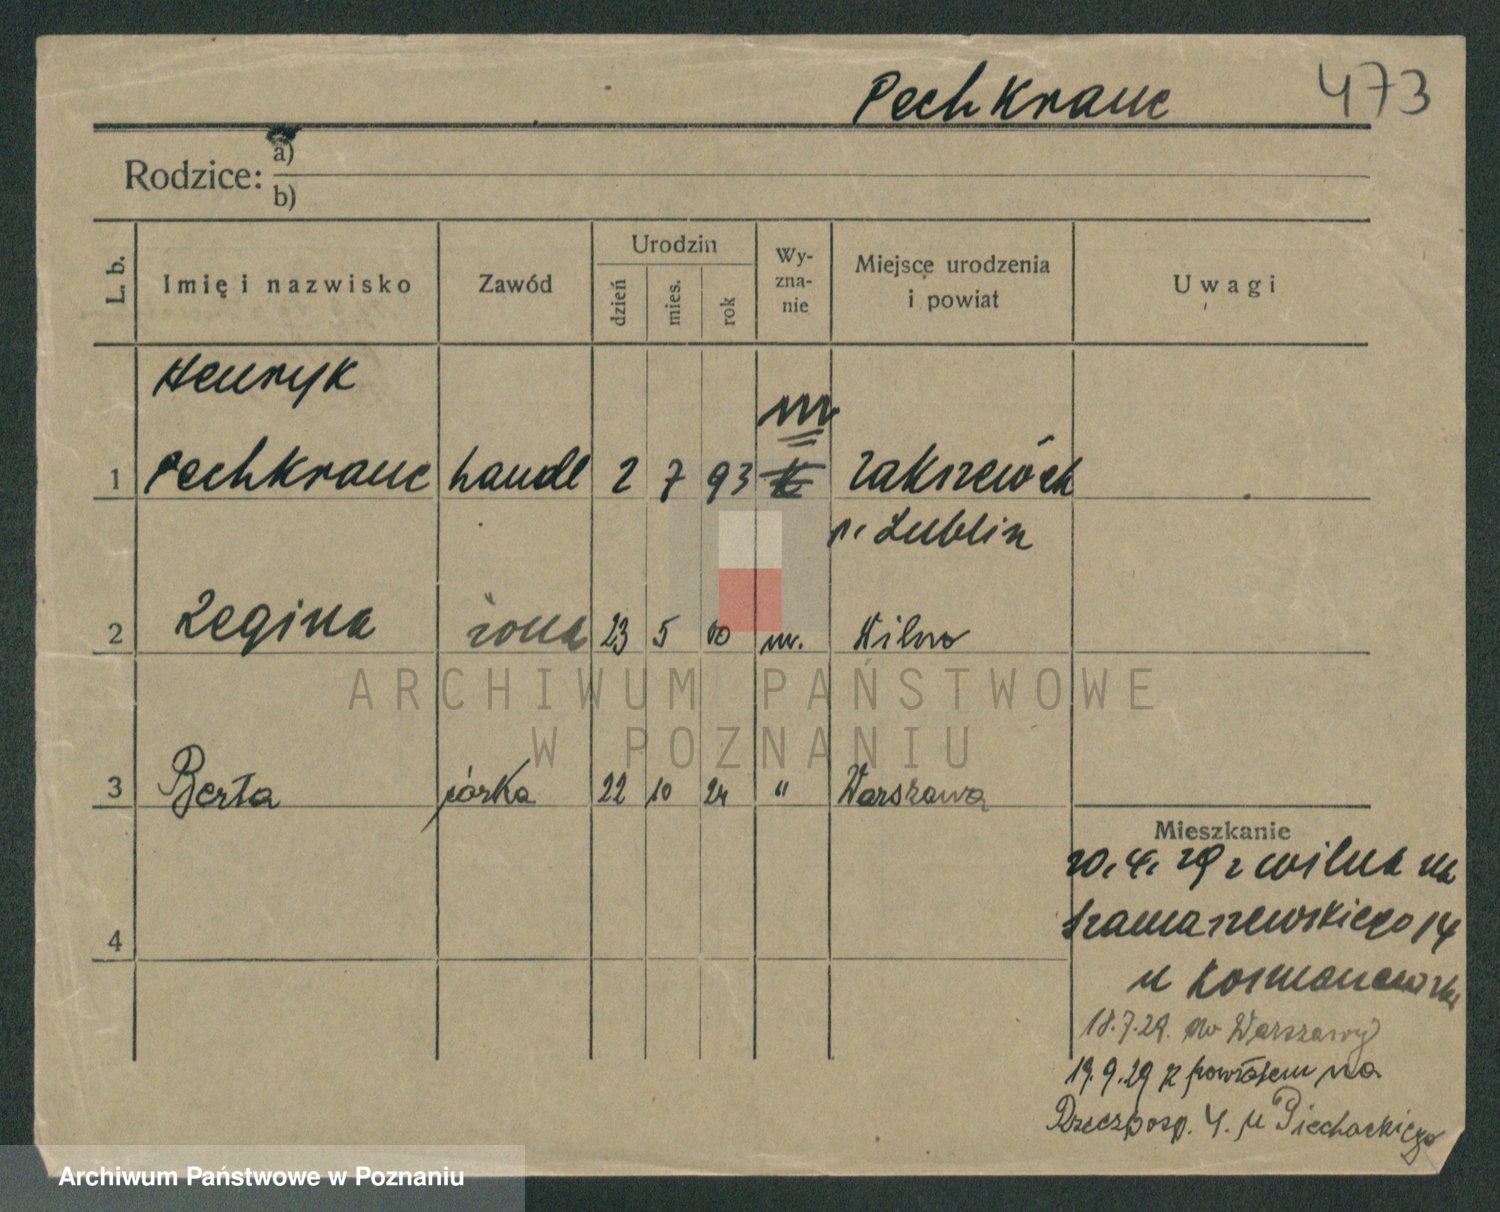 Pechkranc 473
Rodzice: a)
b)
L. b. Imię i nazwisko Zawód Urodzin dzień mies. rok Wy-zna-nie Miejsce urodzenia i powiat Uwagi
Henryk
m
1 Pechkranc handl 2 7 93 K Zakrzewóck
p. Lublin
2 Regina żona 23 5 00 m. Wilno
ARCHIWUM PAŃSTWOWE
W POZNANIU
3 Berta córka 22 10 24 " Warszawa
Mieszkanie
20. 4. 29 z Wilna na
Szamarzewskiego 14
4
u
18.7.29. do Warszawy
19.9.29 z powrotem na
Rzeczposp. 4. u Piechockiego
Archiwum Państwowe w Poznaniu